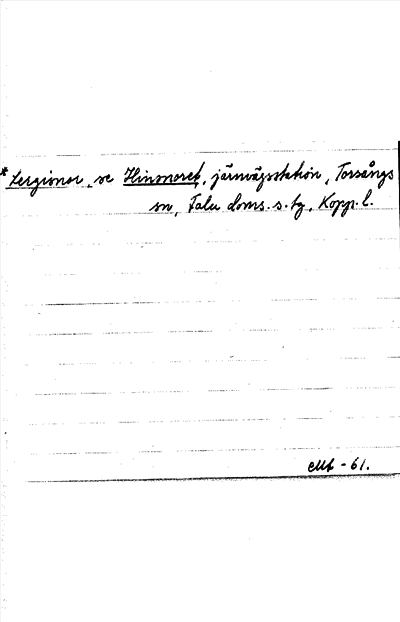 * Lergionor, se Hinsnoret, järnvägsstation, Torsångs
sn, Falu doms. s. tg, Kopp. l.
EMb -61.